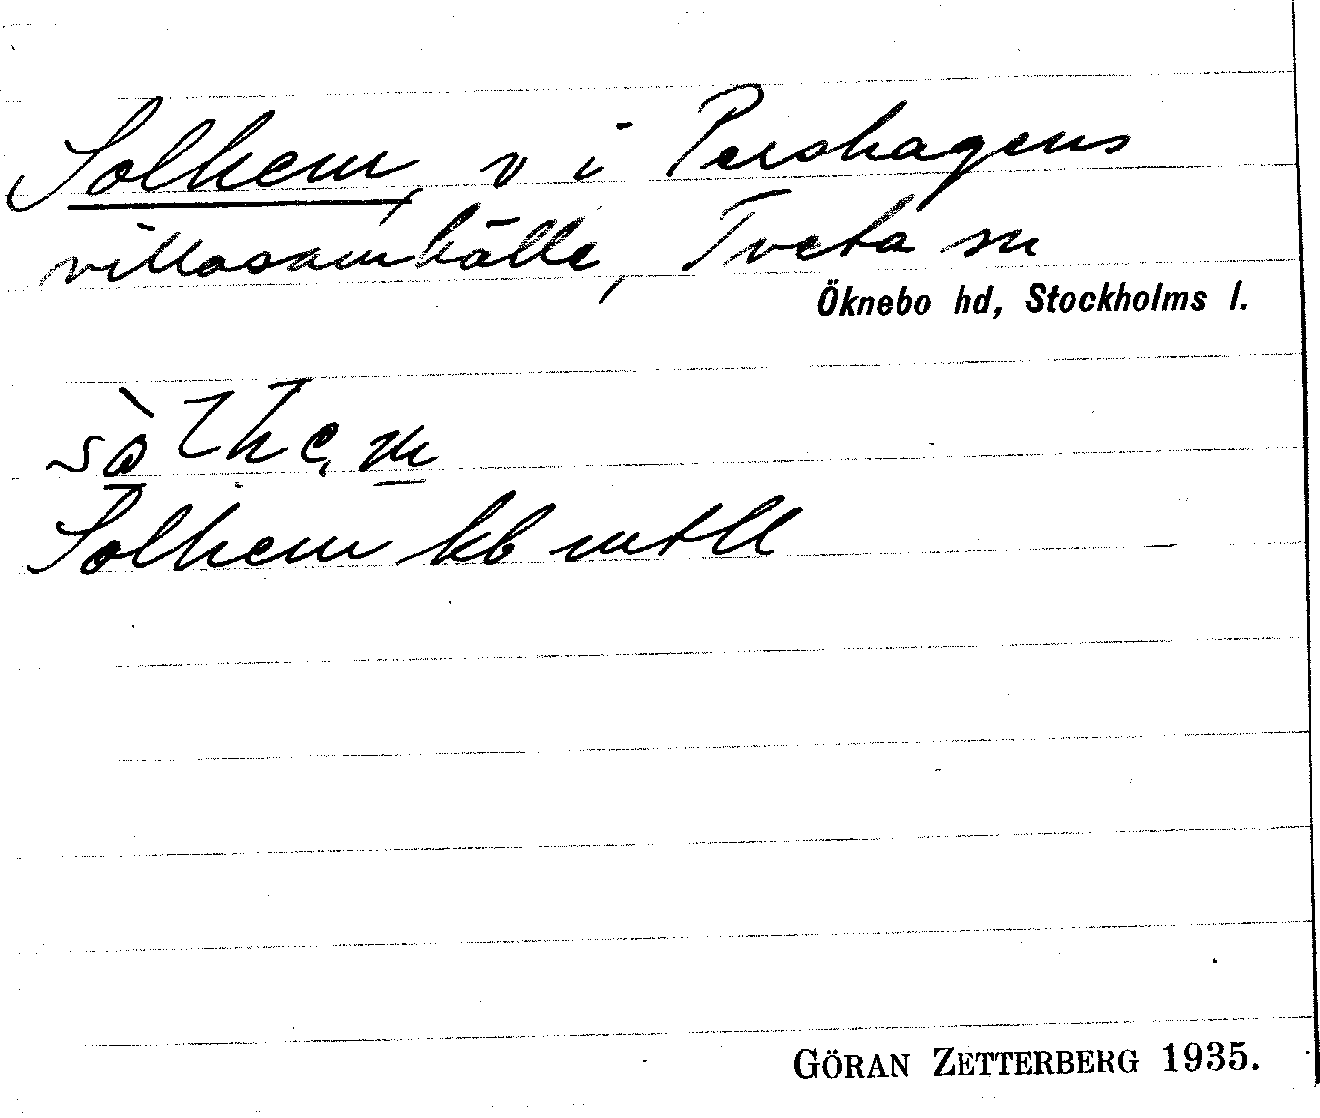 Solhem, v i Pershagens
villasamhälle, Tveta sn
Öknebo hd, Stockholms l.
sòlhem
Solhem kb mtll
GÖRAN ZETTERBERG 1935.